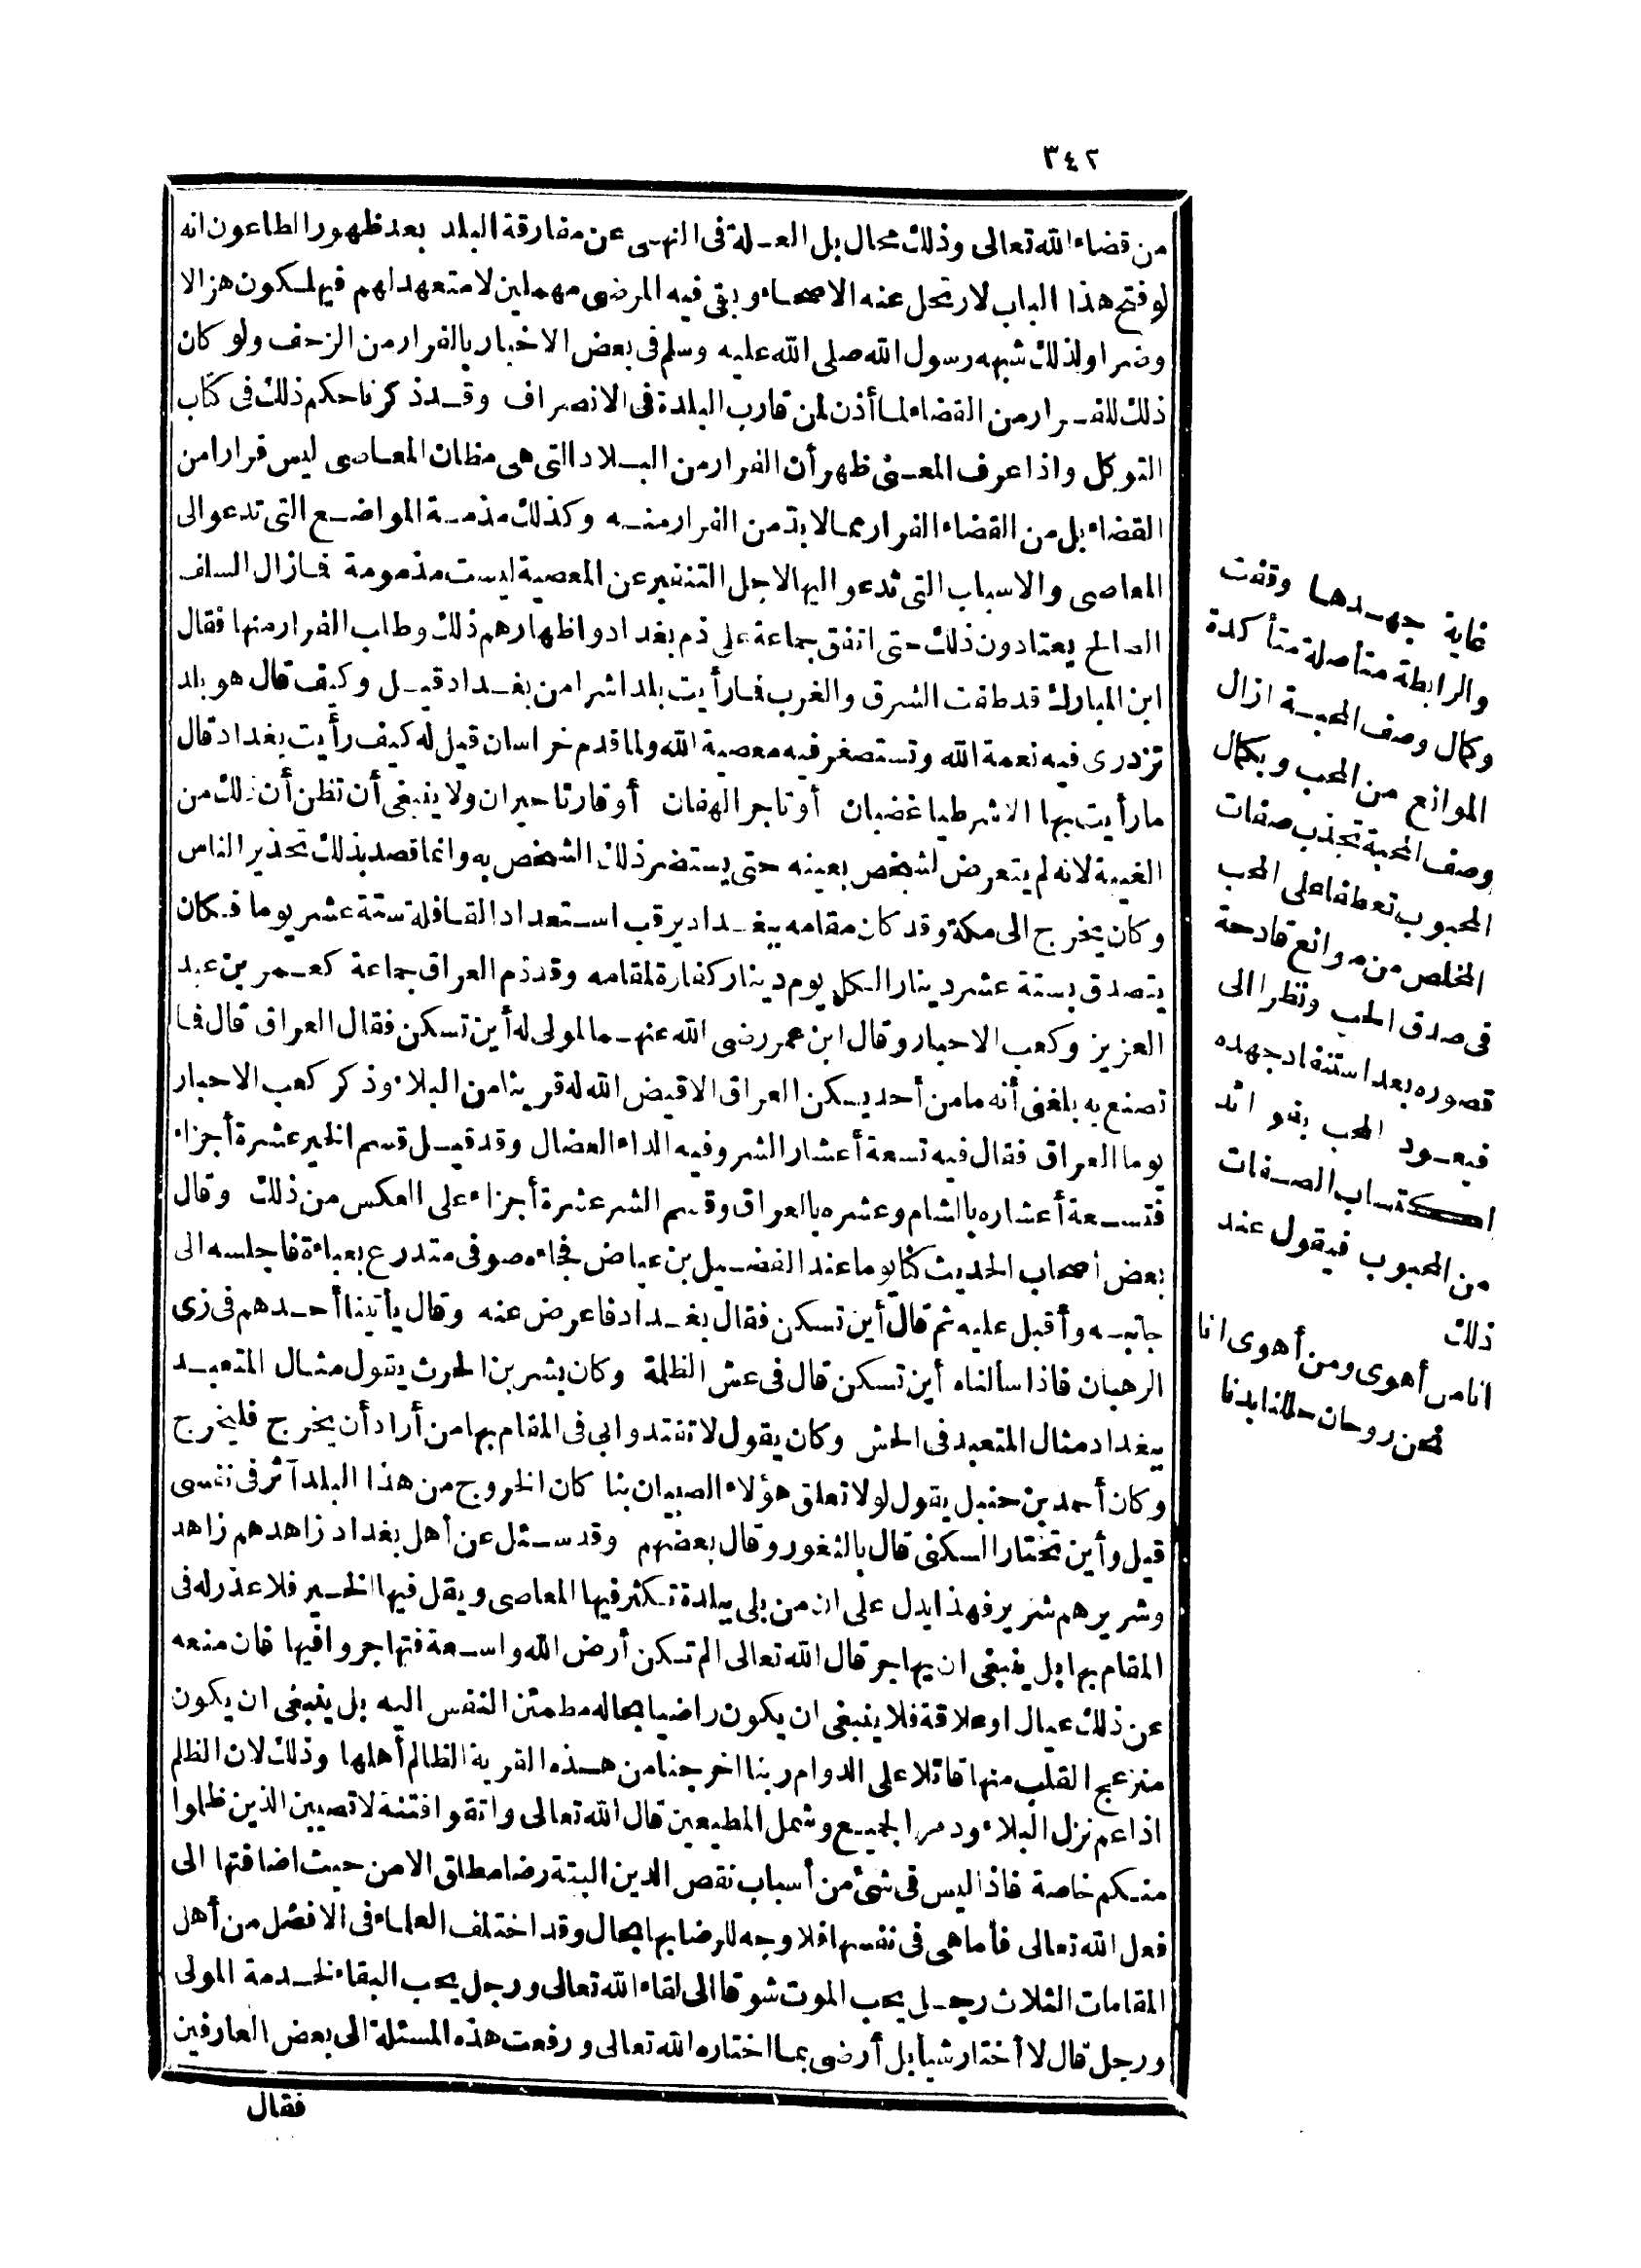 ٣٤٢
من قضاء الله تعالى وذلك محال بل العلة فى النهى عن مفارقة البلد بعد ظهور الطاعون انه
لو فتح هذا الباب لارتحل عنه الاصحاء وبقى فيه المرضى مهملين لا متعهد لهم فيهلكون هزالا
وضرا ولذلك شبهه رسول الله صلى الله عليه وسلم فى بعض الاخبار بالفرار من الزحف ولو كان
ذلك للفرار من القضاء لما أذن لمن قارب البلدة فى الانصراف وقد ذكرنا حكم ذلك فى كتاب
التوكل واذا عرف المعنى ظهر أن الفرار من البلاد التى هى مظان المعاصى ليس فرارا من
القضاء بل من القضاء الفرار مما لا بد من الفرار منه وكذلك مذمة المواضع التى تدعو الى
المعاصى والاسباب التى تدعو اليها لاجل التنفير عن المعصية ليست مذمومة فما زال السلف
الصالح يعتادون ذلك حتى اتفق جماعة على ذم بغداد واظهارهم ذلك وطلب الفرار منها فقال
ابن المبارك قد طفت الشرق والغرب فما رأيت بلدا شرا من بغداد قيل وكيف قال هو بلد
تزدرى فيه نعمة الله وتستصغر فيه معصية الله ولما قدم خراسان قيل له كيف رأيت بغداد قال
ما رأيت بها الا شرطيا غضبان أو تاجرا لهفان أو قارئا حيران ولا ينبغى أن تظن أن ذلك من
الغيبة لانه لم يتعرض لشخص بعينه حتى يستضر ذلك الشخص به وانما قصد بذلك تحذير الناس
وكان يخرج الى مكة وقد كان مقامه ببغداد يرقب استعداد القافلة ستة عشر يوما فكان
يتصدق بستة عشر دينارا لكل يوم دينار كفارة لمقامه وقد ذم العراق جماعة كعمر بن عبد
العزيز وكعب الاحبار وقال ابن عمر رضى الله عنهما لمولى له أين تسكن فقال العراق قال فما
تصنع به بلغنى أنه ما من أحد يسكن العراق الا قيض الله له قرينا من البلاء وذكر كعب الاحبار
يوما العراق فقال فيه تسعة أعشار الشر وفيه الداء العضال وقد قيل قسم الخير عشرة أجزاء
فتسعة أعشاره بالشام وعشره بالعراق وقسم الشر عشرة أجزاء على العكس من ذلك وقال
بعض أصحاب الحديث كنا يوما عند الفضيل بن عياض فجاءه صوفى متدرع بعباءة فاجلسه الى
جانبه وأقبل عليه ثم قال أين تسكن فقال بغداد فاعرض عنه وقال يأتينا أحدهم فى زى
الرهبان فاذا سألناه أين تسكن قال فى عش الظلمة وكان بشر بن الحرث يقول مثال المتعبد
ببغداد مثال المتعبد فى الحش وكان يقول لا تقتدوا بى فى المقام بها من أراد أن يخرج فليخرج
وكان أحمد بن حنبل يقول لولا تعلق هؤلاء الصبيان بنا كان الخروج من هذا البلد آثر فى نفسى
قيل وأين تختار السكنى قال بالثغور وقال بعضهم وقد سئل عن أهل بغداد زاهدهم زاهد
وشريرهم شرير فهذا يدل على ان من بلى ببلدة تكثر فيها المعاصى ويقل فيها الخير فلا عذر له فى
المقام بها بل ينبغى ان يهاجر قال الله تعالى الم تكن أرض الله واسعة فتهاجروا فيها فان منعه
عن ذلك عيال او علاقة فلا ينبغى ان يكون راضيا بحاله مطمئن النفس اليه بل ينبغى ان يكون
منزعج القلب منها قائلا على الدوام ربنا اخرجنا من هذه القرية الظالم أهلها وذلك لان الظلم
اذا عم نزل البلاء ودمر الجميع وشمل المطيعين قال الله تعالى واتقوا فتنة لا تصيبن الذين ظلموا
منكم خاصة فاذا ليس فى شئ من أسباب نقص الدين البتة رضا مطلق الا من حيث اضافتها الى
فعل الله تعالى فأما هى فى نفسها فلا وجه للرضا بها بحال وقد اختلف العلماء فى الافضل من أهل
المقامات الثلاث رجل يحب الموت شوقا الى لقاء الله تعالى ورجل يحب البقاء لخدمة المولى
ورجل قال لا أختار شيأ بل أرضى بما اختاره الله تعالى ورفعت هذه المسئلة الى بعض العارفين
فقال
غاية جهدها وقفت
والرابطة متأصلة متأكدة
وكمال وصف المحبة ازال
الموانع من المحب وبكمال
وصف المحبة تجذب صفات
المحبوب تعطفا على المحب
المخلص من موانع قادحة
فى صدق الحب ونظرا الى
قصوره بعد استنفاد جهده
فيعود المحب بفوائد
اكتساب الصفات
من المحبوب فيقول عند
ذلك
انا من أهوى ومن أهوى انا
نحن روحان حللنا بدنا